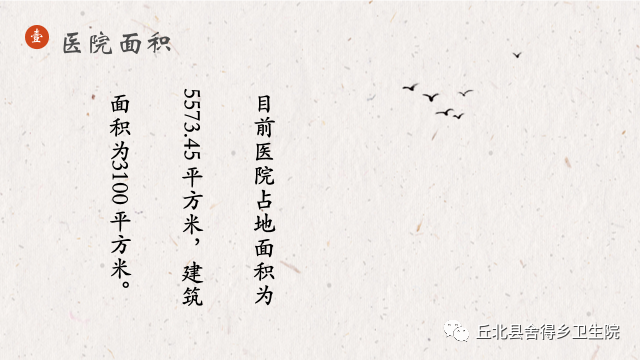 壹
医院面积
目前医院占地面积为
5573.45平方米，建筑
面积为3100平方米。
丘北县舍得乡卫生院